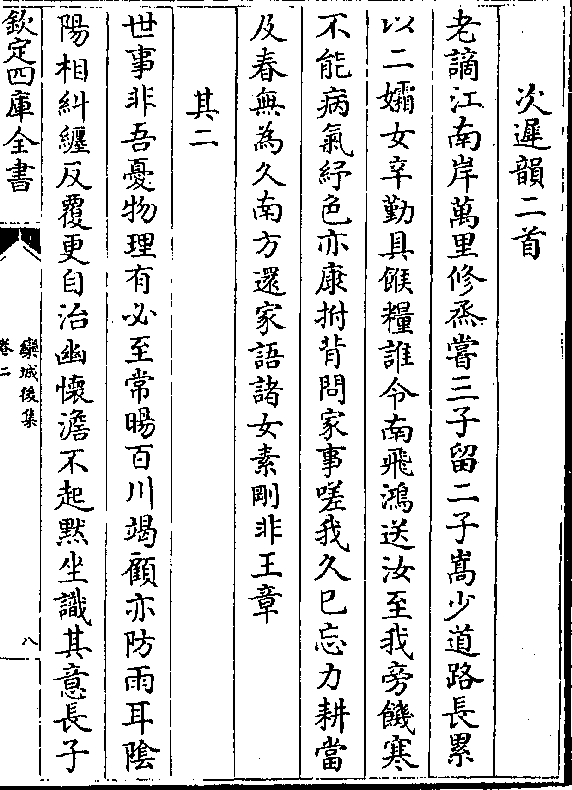 次遲韻二首
老謫江南岸萬里修烝嘗三子留二子嵩少道路長累
以二孀女辛勤具餱糧誰令南飛鴻送汝至我旁饑寒
不能病氣紓色亦康拊背問家事嗟我久已忘力耕當
及春無為久南方還家語諸女素剛非王章
其二
世事非吾憂物理有必至常暘百川竭顧亦防雨耳陰
陽相糾纒反覆更自治幽懷澹不起黙坐識其意長子
欽定四庫全書
欒城後集
卷二
八